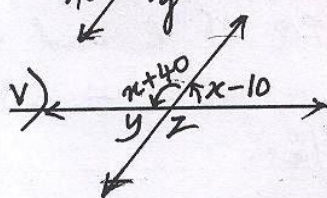 v)
x+40
x-10
y z